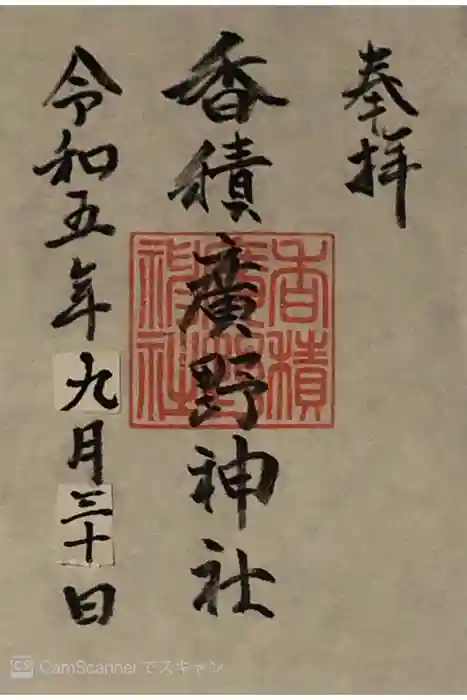 奉拝
香積廣野神社
香積廣野神社
令和五年九月三十日
CS CamScannerでスキャン